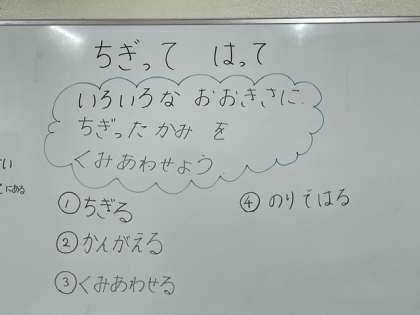 ちぎって はって
いろいろな おおきさに
ちぎった かみ を
くみあわせよう
① ちぎる
② かんがえる
③ くみあわせる
④ のりではる